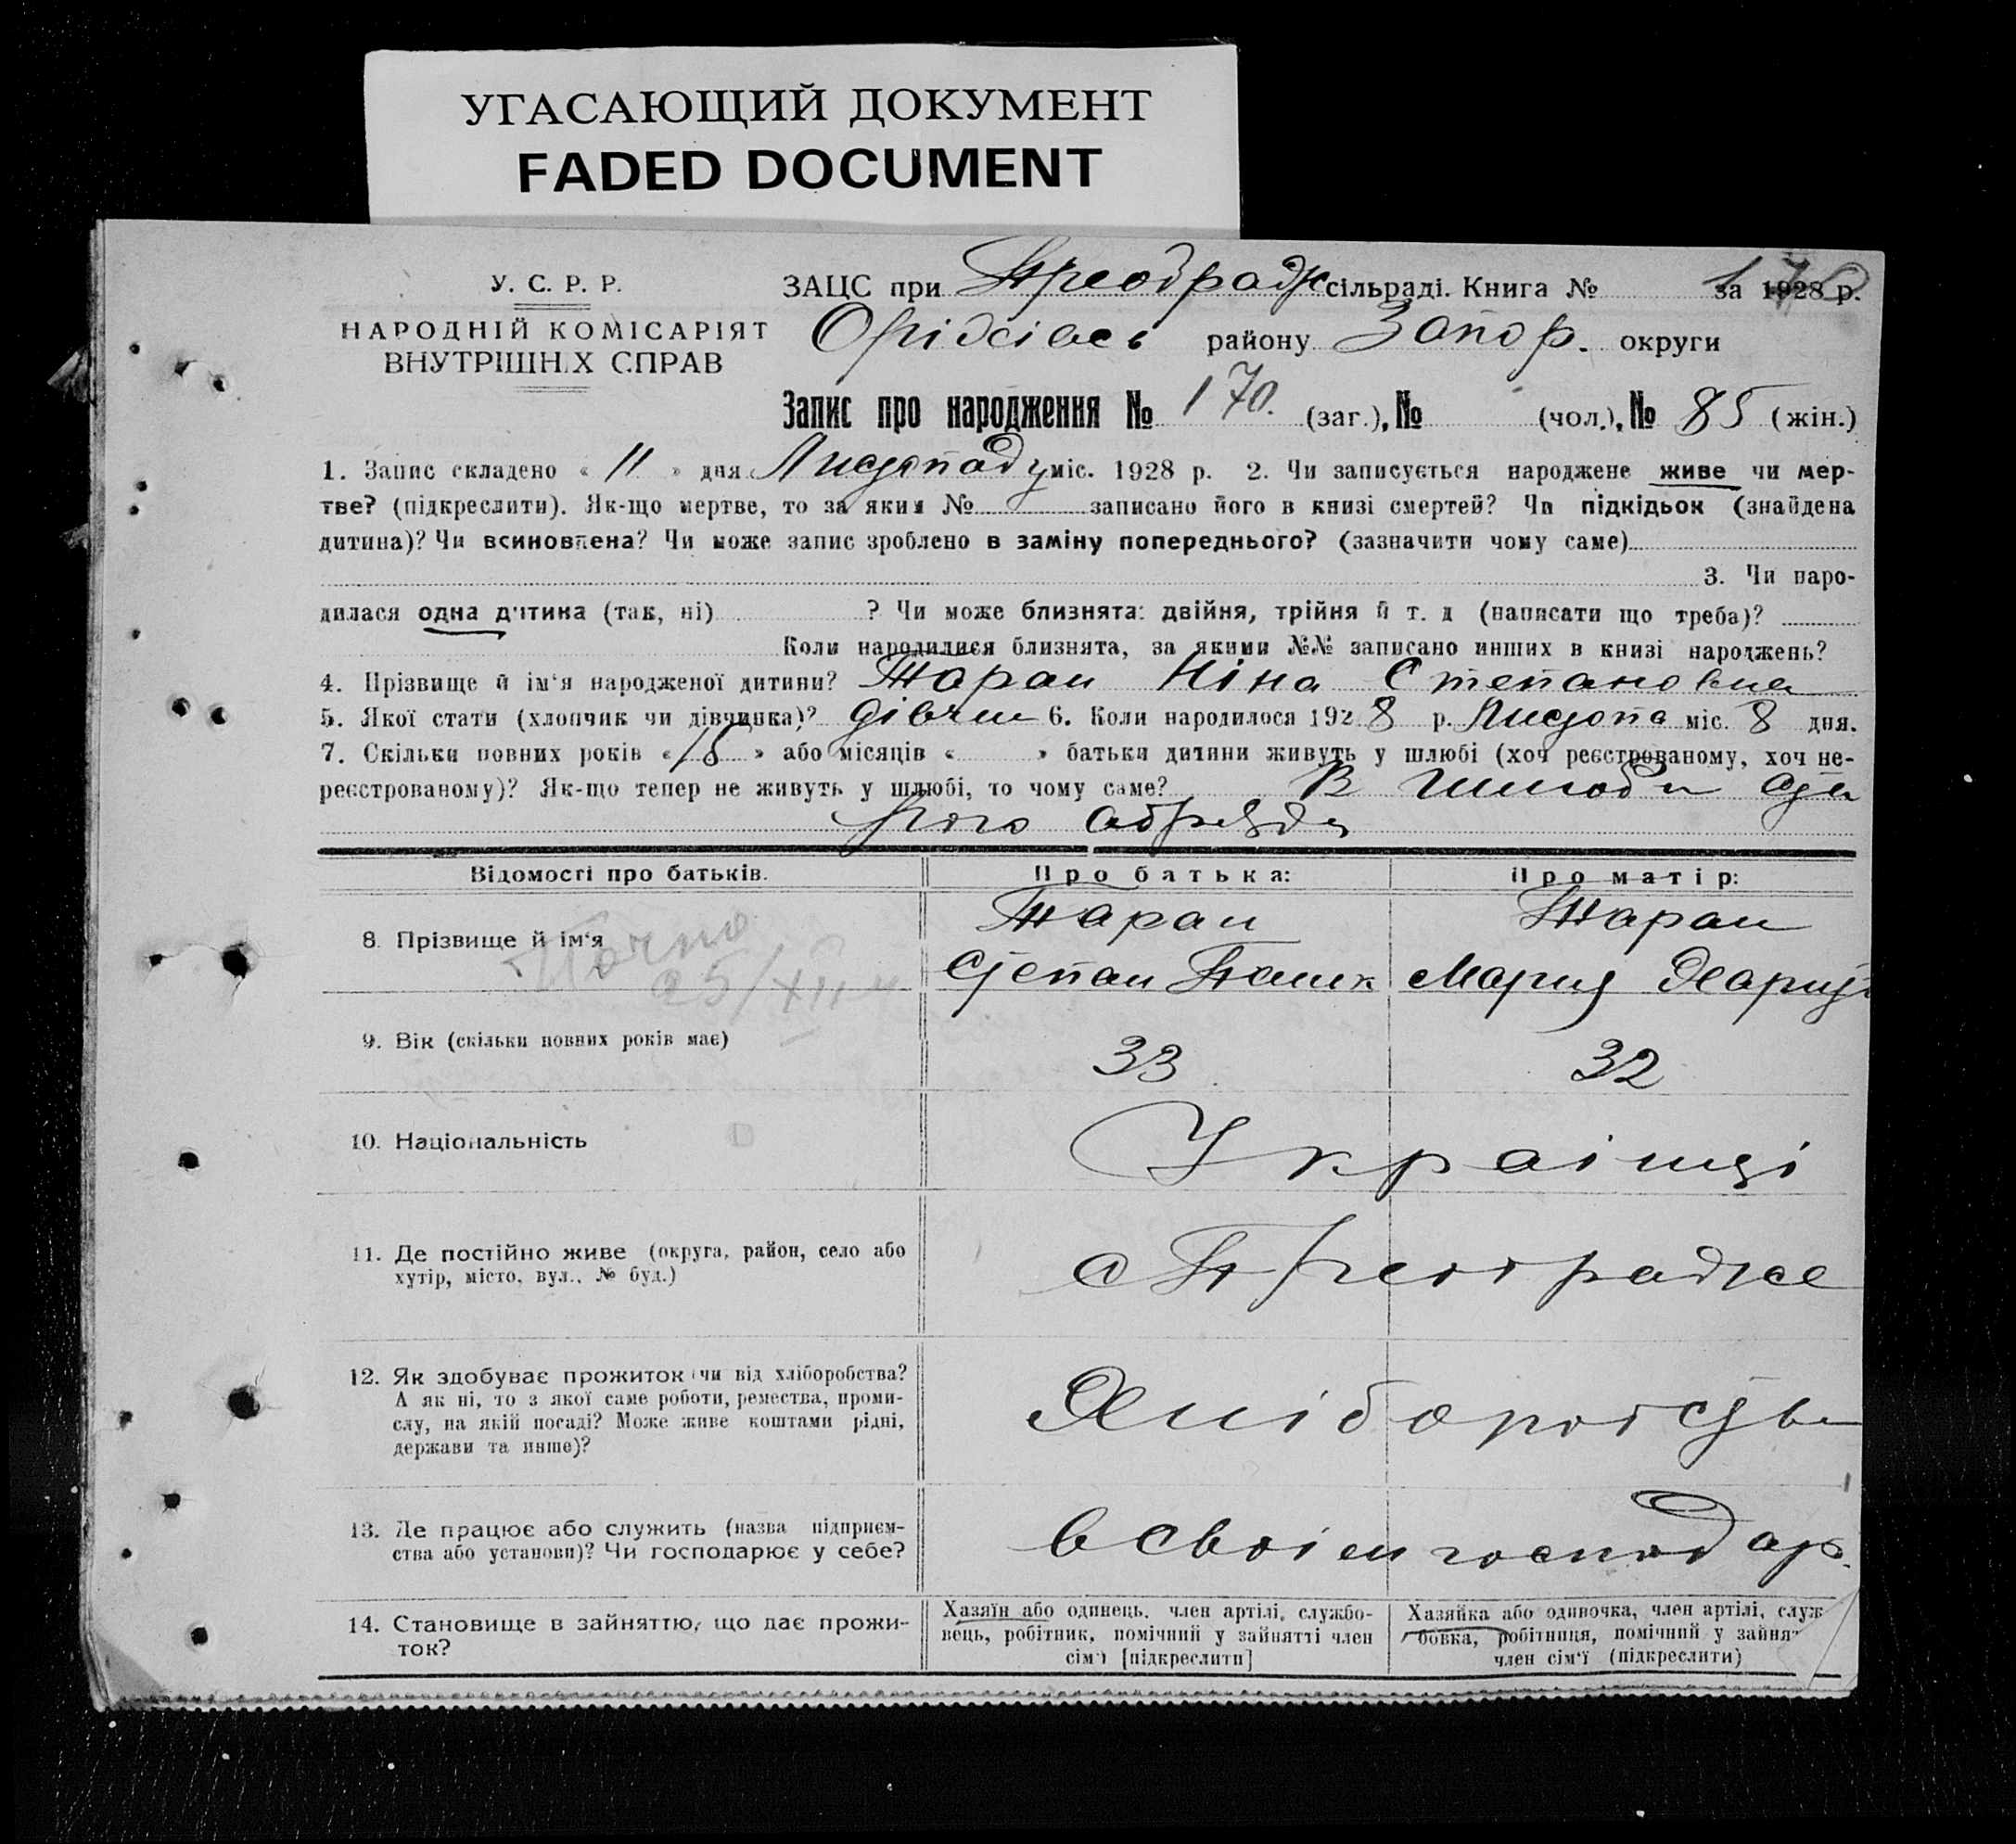 УГАСАЮЩИЙ ДОКУМЕНТ
FADED DOCUMENT
У. С. Р. Р.
НАРОДНІЙ КОМІСАРІЯТ
ВНУТРІШНІХ СПРАВ
ЗАЦС при Преображ сільраді. Книга № за 1928 р.
170
Оріхівсь району Запор. округи
Запис про народження № 170. (заг.), № (чол.), № 85 (жін.)
1. Запис складено « 11 » дня Листопаду міс. 1928 р. 2. Чи записується народжене живе чи мер-
тве? (підкреслити). Як-що мертве, то за яким № записано його в книзі смертей? Чи підкідьок (знайдена
дитина)? Чи всиновлена? Чи може запис зроблено в заміну попереднього? (зазначити чому саме)
3. Чи наро-
дилася одна дитина (так, ні) ? Чи може близнята: двійня, трійня й т. д (написати що треба)?
Коли народилися близнята, за якими №№ записано инших в книзі народжень?
4. Прізвище й ім'я народженої дитини? Таран Ніна Степановна
5. Якої стати (хлопчик чи дівчинка)? дівчин 6. Коли народилося 1928 р. Листопа міс. 8 дня.
7. Скільки повних років « » або місяців « » батьки дитини живуть у шлюбі (хоч реєстрованому, хоч не-
реєстрованому)? Як-що тепер не живуть у шлюбі, то чому саме? В шлюби ста
рого обряда
Відомості про батьків. Про батька: Про матір:
8. Прізвище й ім'я
Таран Таран
Степан Мария Харит
25/XII
9. Вік (скільки повних років має) 33 32
10. Національність Украінці
11. Де постійно живе (округа, район, село або
хутір, місто, вул., № буд.)
с Преображе
12. Як здобуває прожиток чи від хліборобства?
А як ні, то з якої саме роботи, ремества, проми-
слу, на якій посаді? Може живе коштами рідні,
держави та инше)?
Хліборобств
13. Де працює або служить (назва підприєм-
ства або установи)? Чи господарює у себе?
в своім господар.
14. Становище в зайняттю, що дає прожи-
ток?
Хазяїн або одинець, член артілі, службо-
вець, робітник, помічний у зайнятті член
сім'ї [підкреслити]
Хазяйка або одиночка, член артілі, служ
бовка, робітниця, помічний у зайнят
член сім'ї (підкреслити)